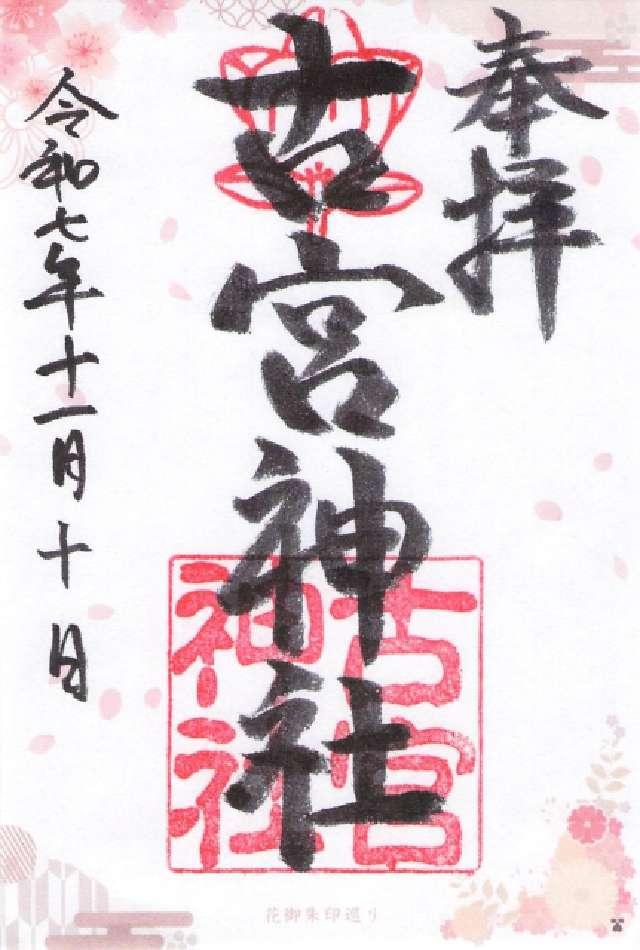 奉拝
古宮神社
古宮
神社
令和七年十一月十日
花御朱印巡り